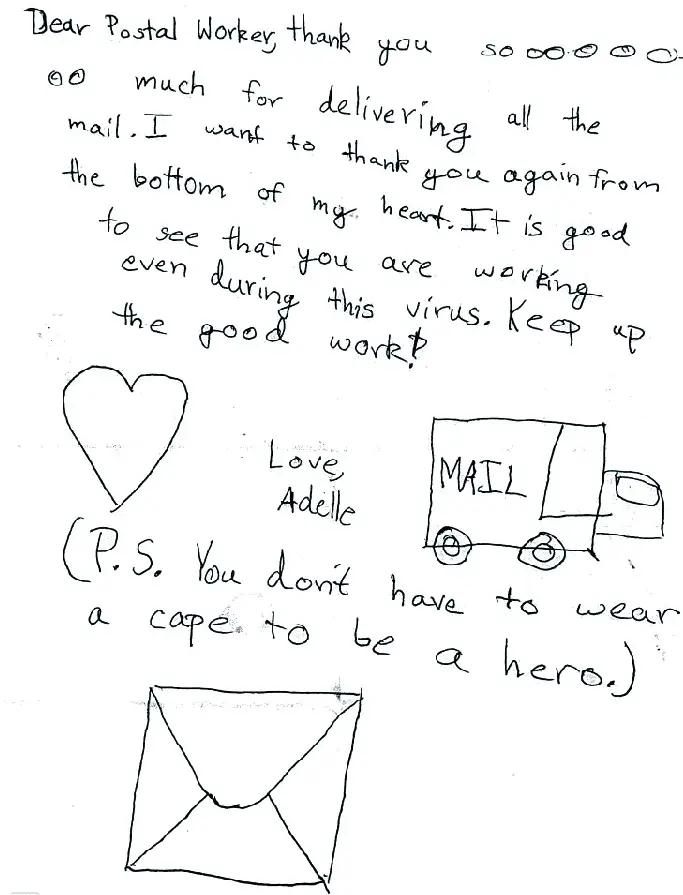 Dear Postal Worker, thank you soooooooo
oo much for delivering all the
mail. I want to thank you again from
the bottom of my heart. It is good
to see that you are working
even during this virus. Keep up
the good work!
Love,
Adelle
MAIL
(P.S. You don't have to wear
a cape to be a hero.)